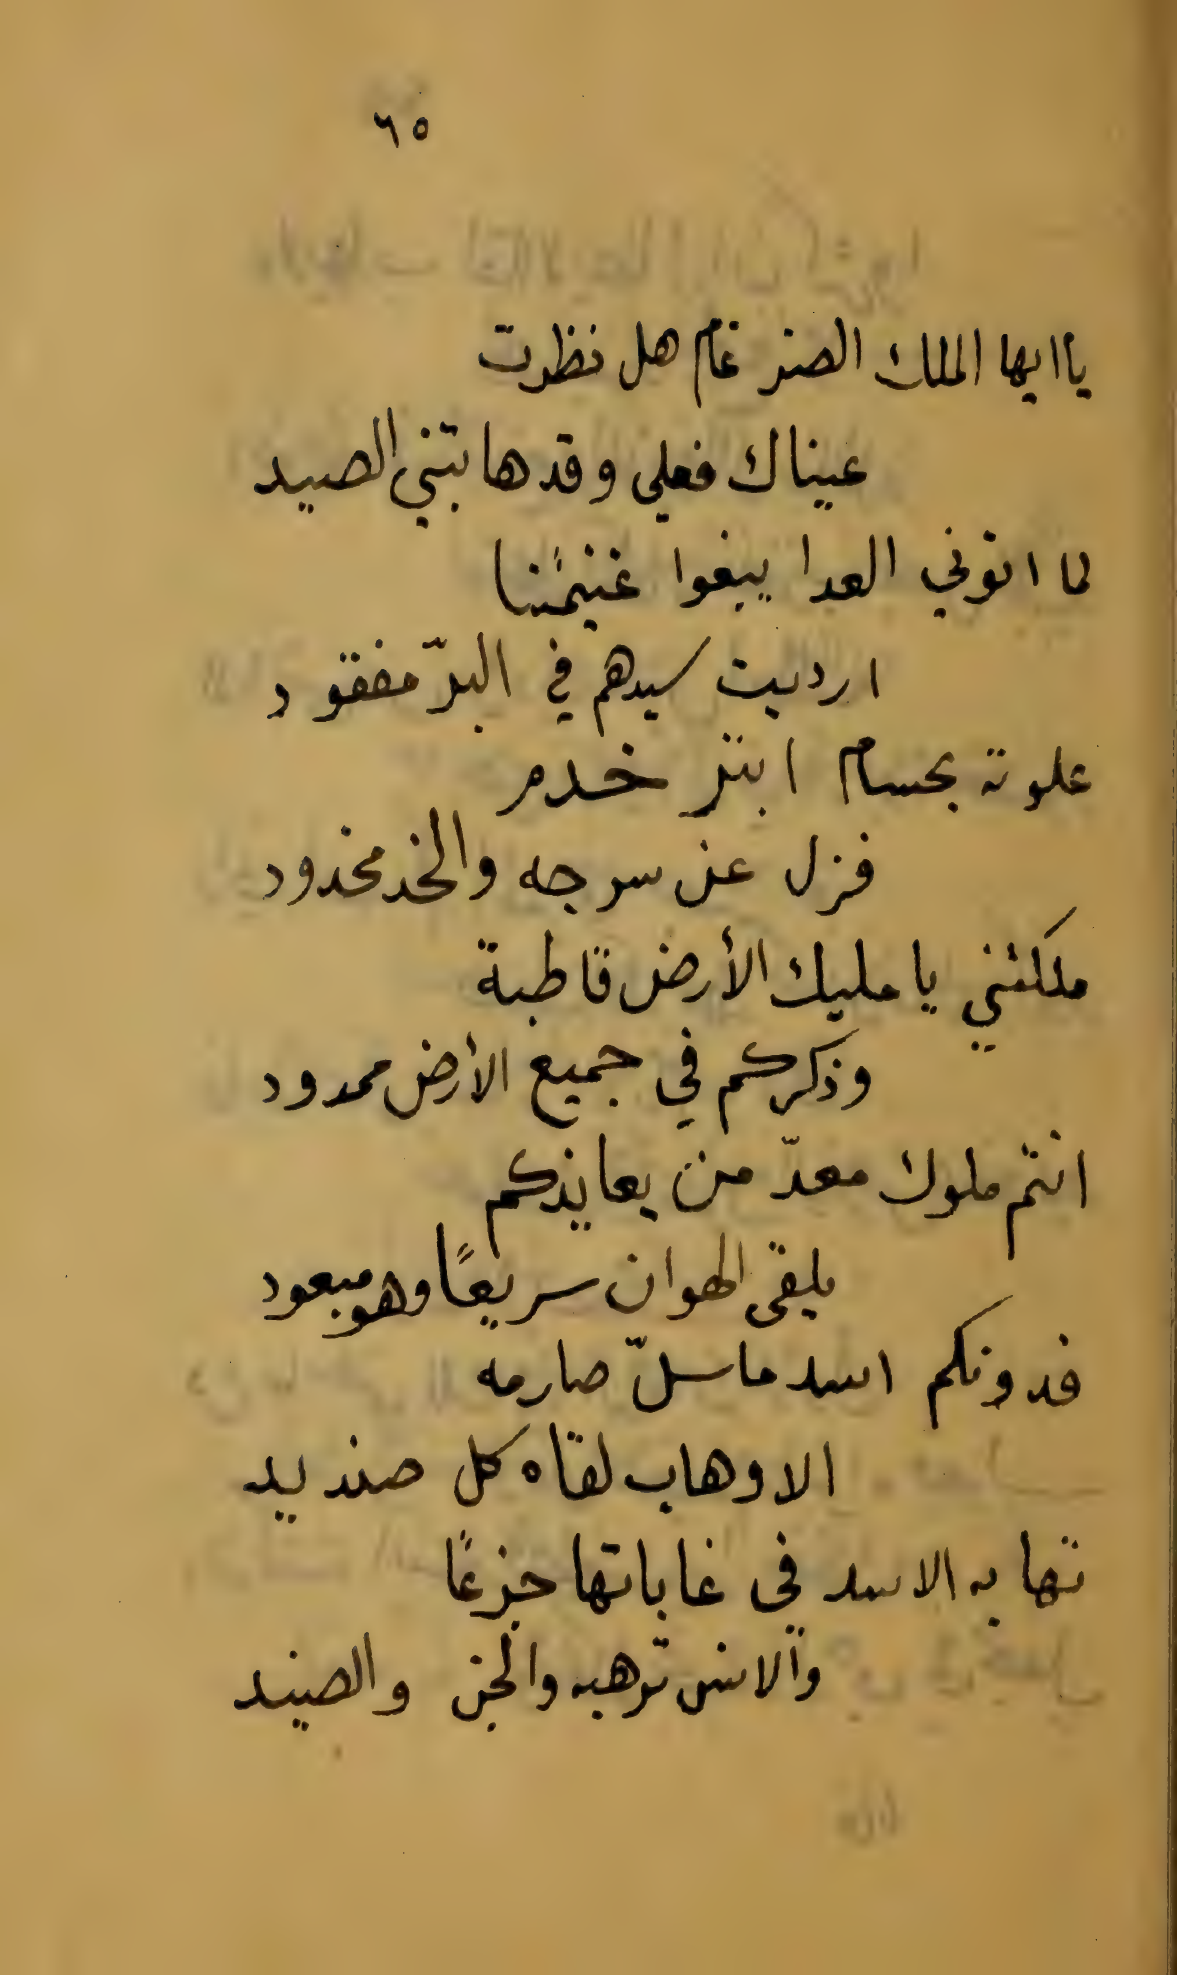 ٦٥
ياايها الملك الضرغام هل نظرت
عيناك فعلي وقد هابتني الصيد
لما اتوني العدا يبغوا غنيمتنا
ارديت سيدهم في البرّ مفقود
علوته بحسام ابتر خدم
فزل عن سرجه والخد مخدود
ملكتني يا مليك الأرض قاطبة
وذكركم في جميع الأرض ممدود
انتم ملوك معدّ من يعاندكم
يلقى الهوان سريعًا وهو مبعود
فدونكم اسد ماسلّ صارمه
الا وهاب لقاه كل صنديد
تهابه الاسد في غاباتها جزعًا
والانس ترهبه والجن والصيد